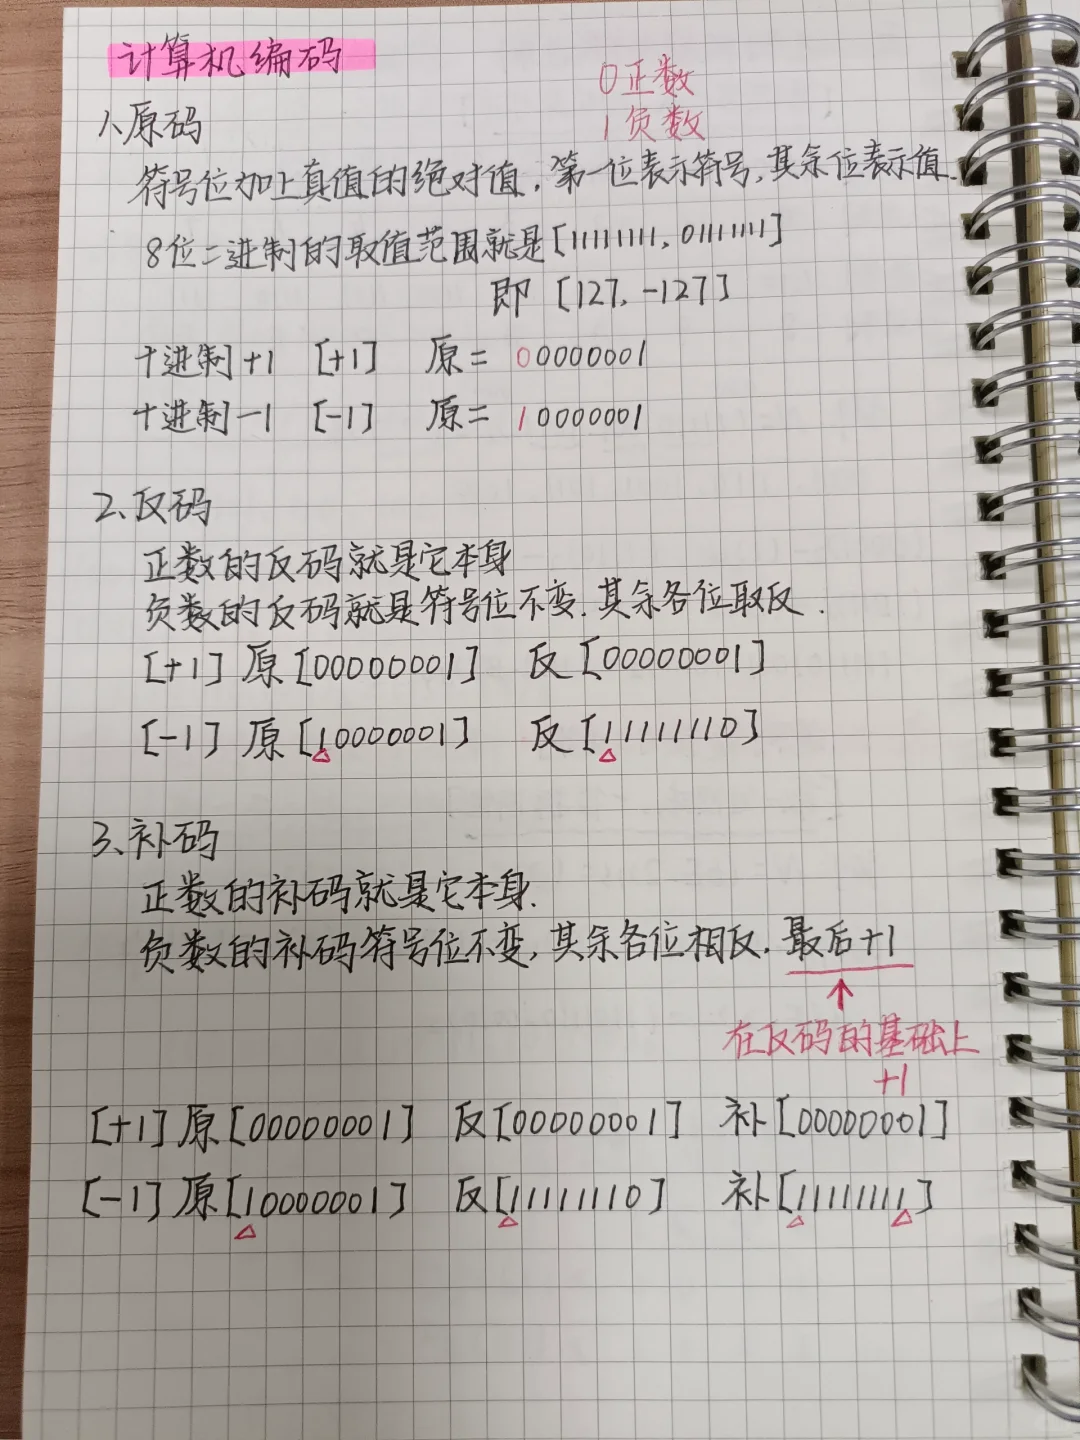 计算机编码
0 正数
1 负数
1、原码
符号位加上真值的绝对值，第一位表示符号，其余位表示值．
8位二进制的取值范围就是[11111111，01111111]
即 [127，-127]
十进制+1 [+1] 原= 00000001
十进制-1 [-1] 原= 10000001
2、反码
正数的反码就是它本身
负数的反码就是符号位不变．其余各位取反．
[+1] 原[00000001] 反[00000001]
[-1] 原[10000001] 反[11111110]
3、补码
正数的补码就是它本身．
负数的补码符号位不变，其余各位相反．最后+1
在反码的基础上
+1
[+1]原[00000001] 反[00000001] 补[00000001]
[-1]原[10000001] 反[11111110] 补[11111111]